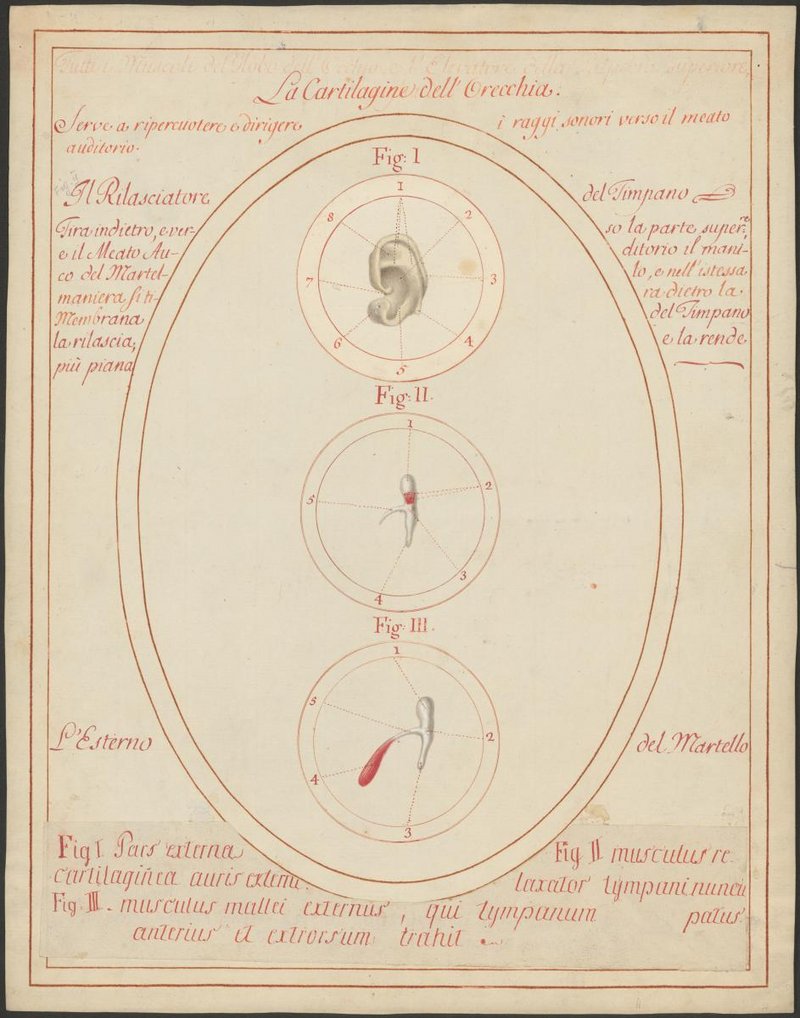 Tutti i Muscoli del Globo dell' e l'Elevatore della superiore
La Cartilagine dell' Orecchia:
Serve a ripercuotere e dirigere i raggi sonori verso il meato
auditorio.
Fig: I
1
2
3
4
5
6
7
8
Il Rilasciatore del Timpano
Tira indietro, e ver- so la parte super,re
e il Meato Au- ditorio il mani-
co del Martel- lo, e nell' istessa
maniera si ti- ra dietro la
Membrana del Timpano
la rilascia, e la rende
più piana
Fig: II.
1
2
3
4
5
Fig: III.
1
2
3
4
5
L'Esterno del Martello
Fig I. Pars externa Fig II musculus re-
cartilaginea auris externæ. laxator tympani nuncu
Fig. III. musculus mallei externus, qui tympanum patus
anterius et extrorsum trahit.